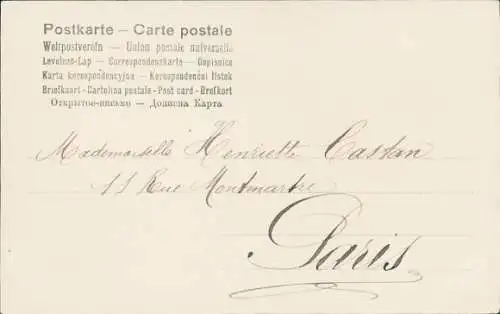 Postkarte – Carte postale
Weltpostverein — Union postale universelle
Levelező-Lap — Correspondenzkarte — Dopisnice
Karta korespondencyjna — Korespondenční lístek
Briefkaart - Cartolina postale - Post card - Brefkort
Открытое-письмо — Дописна Карта
Mademoiselle Henriette Castan
15 Rue Montmartre
Paris